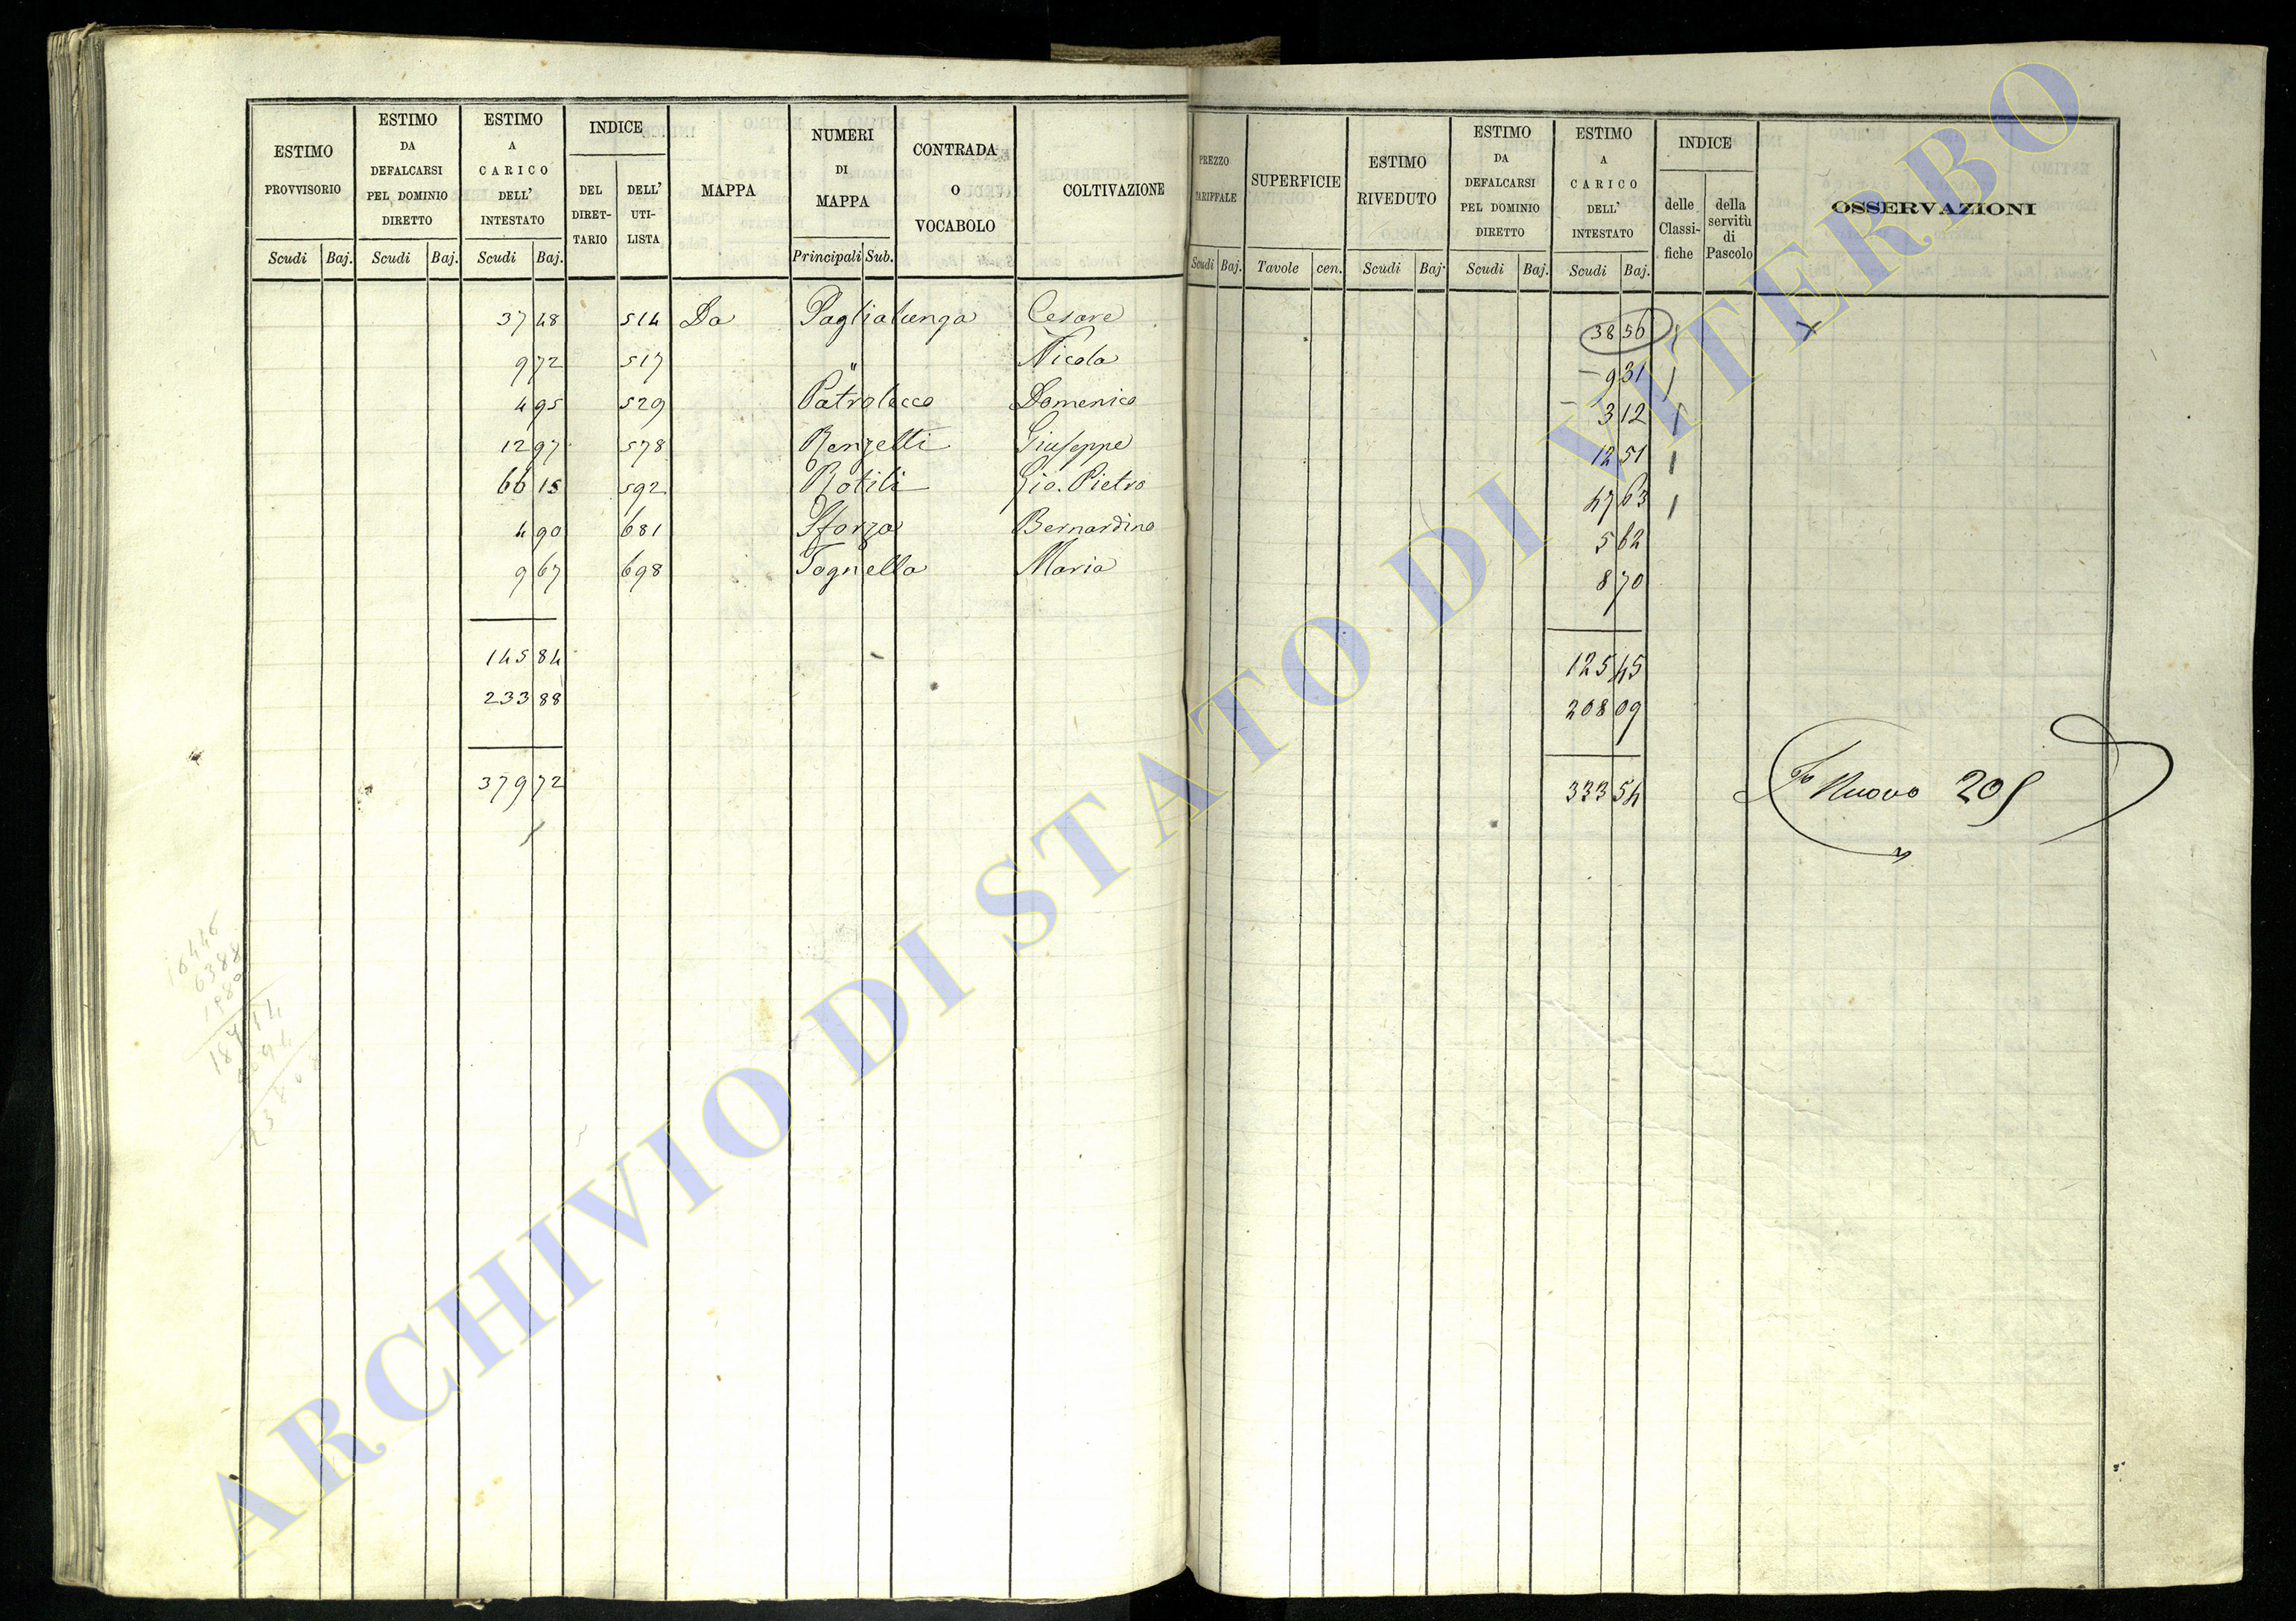 ESTIMO PROVVISORIO
Scudi Baj.
ESTIMO DA DEFALCARSI PEL DOMINIO DIRETTO
Scudi Baj.
ESTIMO A CARICO DELL' INTESTATO
Scudi Baj.
INDICE
DEL DIRET-TARIO
DELL' UTI-LISTA
MAPPA
NUMERI DI MAPPA
Principali Sub.
CONTRADA O VOCABOLO
COLTIVAZIONE
PREZZO TARIFFALE
Scudi Baj.
SUPERFICIE
Tavole cen.
ESTIMO RIVEDUTO
Scudi Baj.
ESTIMO DA DEFALCARSI PEL DOMINIO DIRETTO
Scudi Baj.
ESTIMO A CARICO DELL' INTESTATO
Scudi Baj.
INDICE
delle Classi-fiche
della servitù di Pascolo
OSSERVAZIONI
37 48 514 Da Paglialunga Cesare 38 56
9 72 517 " Nicola 9 31
4 95 529 Patrolecco Domenico 3 12
12 97 578 Renzetti Giuseppe 12 51
66 15 592 Rotili Gio. Pietro 47 63
4 90 681 Sforza Bernardino 5 62
9 67 698 Tognella Maria 8 70
145 84 125 45
233 88 208 09
379 72 333 54
Fo Nuovo 205
ARCHIVIO DI STATO DI VITERBO